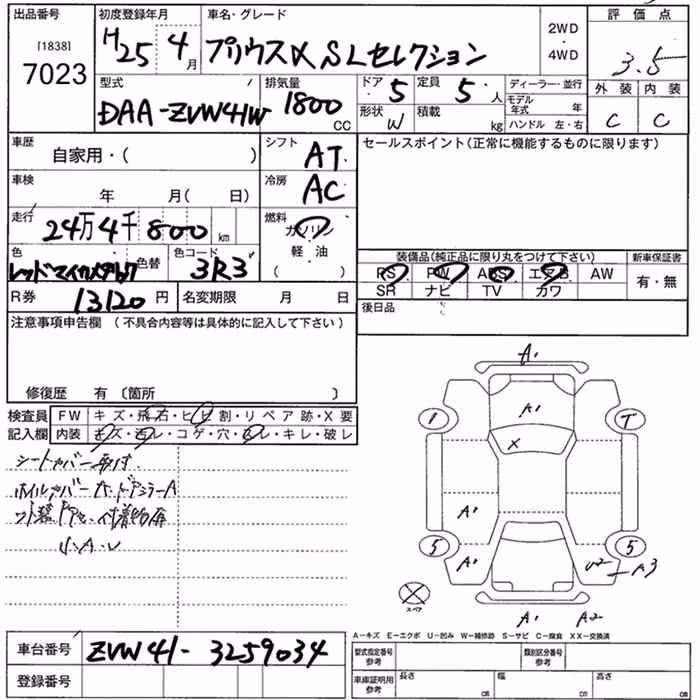 出品番号 初度登録年月 車名・グレード 評価点
[1838]
7023
H25 4月 プリウスα SLセレクション 2WD・4WD 3.5
型式 排気量 ドア 5 定員 5人 ディーラー・並行 外装 内装
DAA-ZVW41W 1800 CC 形状 W 積載 kg モデル年式 年 C C
ハンドル 左・右
車歴 シフト セールスポイント(正常に機能するものに限ります)
自家用・( ) AT
車検 冷房
年 月( 日) AC
走行 燃料
24万4千800km ガソリン
軽・油
色 色替 色コード 装備品(純正品に限り丸をつけて下さい) 新車保証書
レッドマイカメタリック 3R3 PS PW ABS エアB AW 有・無
SR ナビ TV カワ
R券 13120円 名変期限 月 日 後日品
注意事項申告欄 (不具合内容等は具体的に記入して下さい)
修復歴 有 〔箇所 〕
検査員 FW キズ・飛石・ヒビ割・リペア跡・X要
記入欄 内装 キズ・汚レ・コゲ・穴・スレ・キレ・破レ
シートカバー取付
小A.U
A1
1 A1 T
X
A1
5 A1 U2 A3 5
スペア
A1 A2
A-キズ E-エクボ U-凹み W-補修跡 S-サビ C-腐食 XX-交換済
車台番号 ZVW41-3259034 型式指定番号参考 類別区分番号参考
登録番号 車庫証明用参考 長さ cm 幅 cm 高さ cm